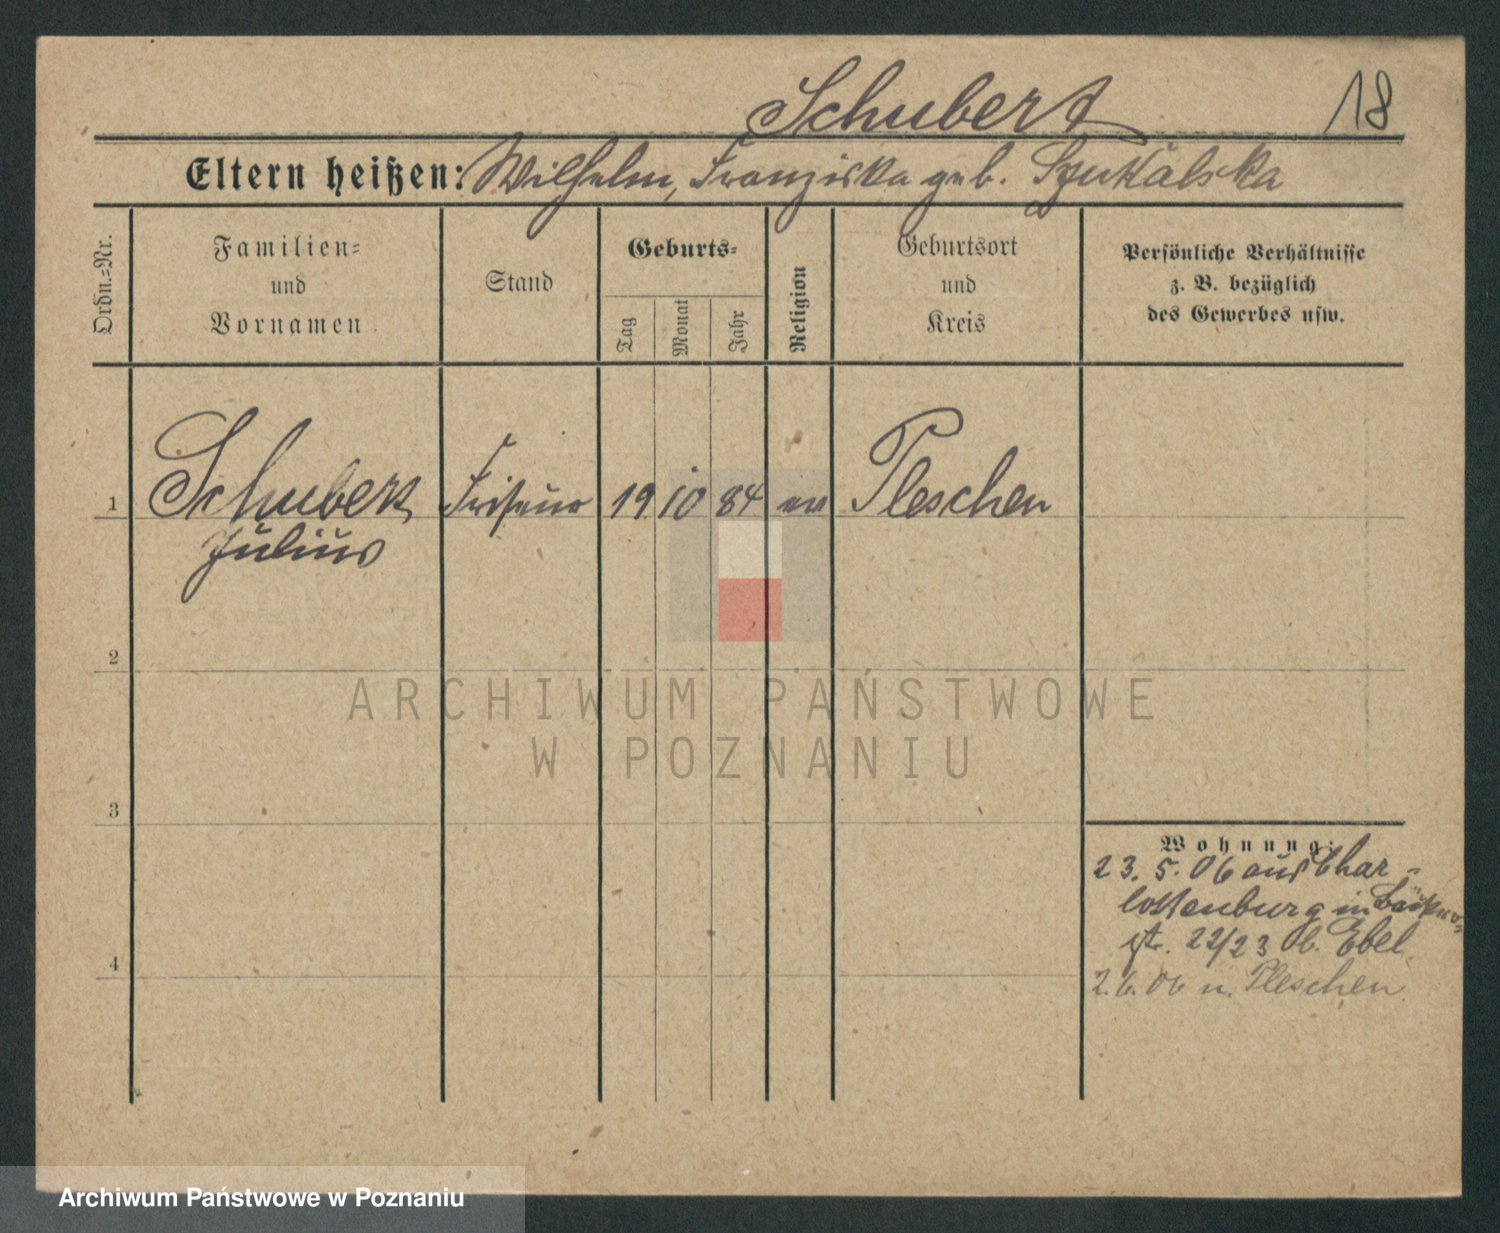 Schubert
18
Eltern heißen: Wilhelm, Franziska geb. Szukalska
Ordn.-Nr.
Familien-
und
Vornamen
Stand
Geburts-
Tag
Monat
Jahr
Religion
Geburtsort
und
Kreis
Persönliche Verhältnisse
z. B. bezüglich
des Gewerbes usw.
1
Schubert
Julius
Friseur
19
10
84
ev
Pleschen
2
3
4
Wohnung:
23. 5. 06 aus Char-
lottenburg in
str. 22/23 b. Ebel.
2.6.06 n. Pleschen
ARCHIWUM PAŃSTWOWE
W POZNANIU
Archiwum Państwowe w Poznaniu